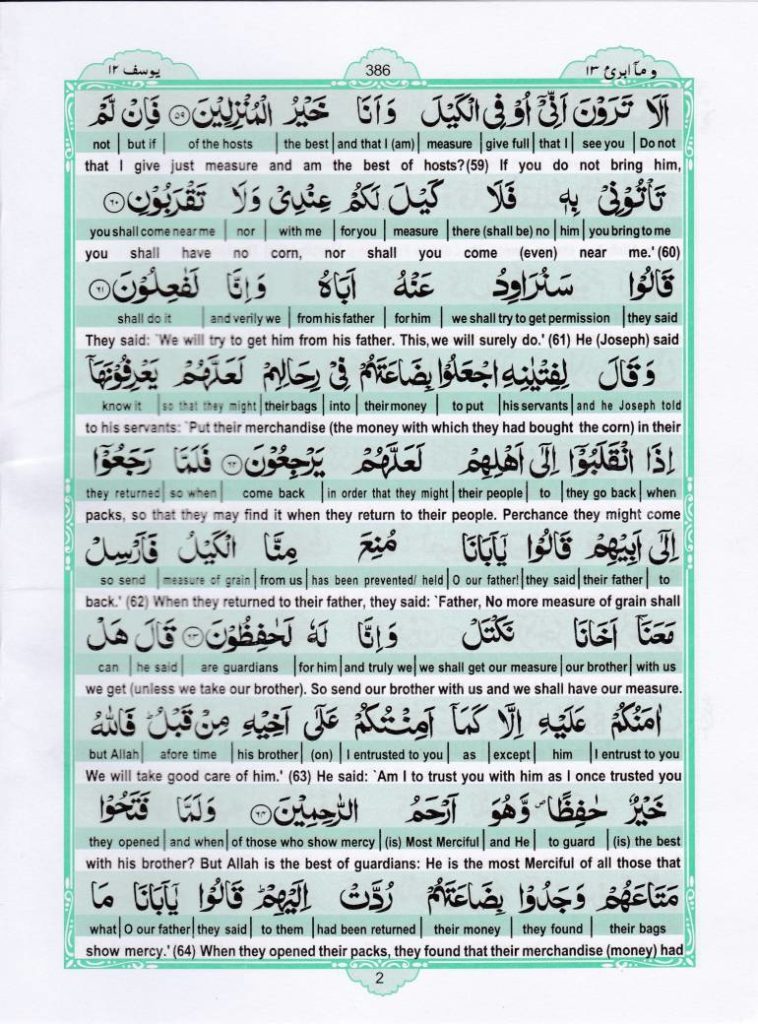 يوسف ١٢
386
وما ابرئ ١٣
اَلَا تَرَوْنَ اَنِّيْۤ اُوْفِي الْكَيْلَ وَ اَنَا خَيْرُ الْمُنْزِلِيْنَ ۝۵۹ فَاِنْ لَّمْ
not | but if | of the hosts | the best | and that I (am) | measure | give full | that I | see you | Do not
that I give just measure and am the best of hosts?(59) If you do not bring him,
تَاْتُوْنِيْ بِهٖ فَلَا كَيْلَ لَكُمْ عِنْدِيْ وَلَا تَقْرَبُوْنِ ۝۶۰
you shall come near me | nor | with me | for you | measure | there (shall be) no | him | you bring to me
you shall have no corn, nor shall you come (even) near me.' (60)
قَالُوْا سَنُرَاوِدُ عَنْهُ اَبَاهُ وَ اِنَّا لَفٰعِلُوْنَ ۝۶۱
shall do it | and verily we | from his father | for him | we shall try to get permission | they said
They said: `We will try to get him from his father. This, we will surely do.' (61) He (Joseph) said
وَ قَالَ لِفِتْيٰنِهِ اجْعَلُوْا بِضَاعَتَهُمْ فِيْ رِحَالِهِمْ لَعَلَّهُمْ يَعْرِفُوْنَهَاۤ
know it | so that they might | their bags | into | their money | to put | his servants | and he Joseph told
to his servants: `Put their merchandise (the money with which they had bought the corn) in their
اِذَا انْقَلَبُوْۤا اِلٰۤى اَهْلِهِمْ لَعَلَّهُمْ يَرْجِعُوْنَ ۝۶۲ فَلَمَّا رَجَعُوْۤا
they returned | so when | come back | in order that they might | their people | to | they go back | when
packs, so that they may find it when they return to their people. Perchance they might come
اِلٰۤى اَبِيْهِمْ قَالُوْا يٰۤاَبَانَا مُنِعَ مِنَّا الْكَيْلُ فَاَرْسِلْ
so send | measure of grain | from us | has been prevented/ held | O our father! | they said | their father | to
back.' (62) When they returned to their father, they said: `Father, No more measure of grain shall
مَعَنَاۤ اَخَانَا نَكْتَلْ وَ اِنَّا لَهٗ لَحٰفِظُوْنَ ۝۶۳ قَالَ هَلْ
can | he said | are guardians | for him | and truly we | we shall get our measure | our brother | with us
we get (unless we take our brother). So send our brother with us and we shall have our measure.
اٰمَنُكُمْ عَلَيْهِ اِلَّا كَمَاۤ اَمِنْتُكُمْ عَلٰۤى اَخِيْهِ مِنْ قَبْلُ ؕ فَاللّٰهُ
but Allah | afore time | his brother | (on) | I entrusted to you | as | except | him | I entrust to you
We will take good care of him.' (63) He said: `Am I to trust you with him as I once trusted you
خَيْرٌ حٰفِظًا ۪ وَّ هُوَ اَرْحَمُ الرّٰحِمِيْنَ ۝۶۴ وَلَمَّا فَتَحُوْا
they opened | and when | of those who show mercy | (is) Most Merciful | and He | to guard | (is) the best
with his brother? But Allah is the best of guardians: He is the most Merciful of all those that
مَتَاعَهُمْ وَجَدُوْا بِضَاعَتَهُمْ رُدَّتْ اِلَيْهِمْ ؕ قَالُوْا يٰۤاَبَانَا مَا
what | O our father | they said | to them | had been returned | their money | they found | their bags
show mercy.' (64) When they opened their packs, they found that their merchandise (money) had
2